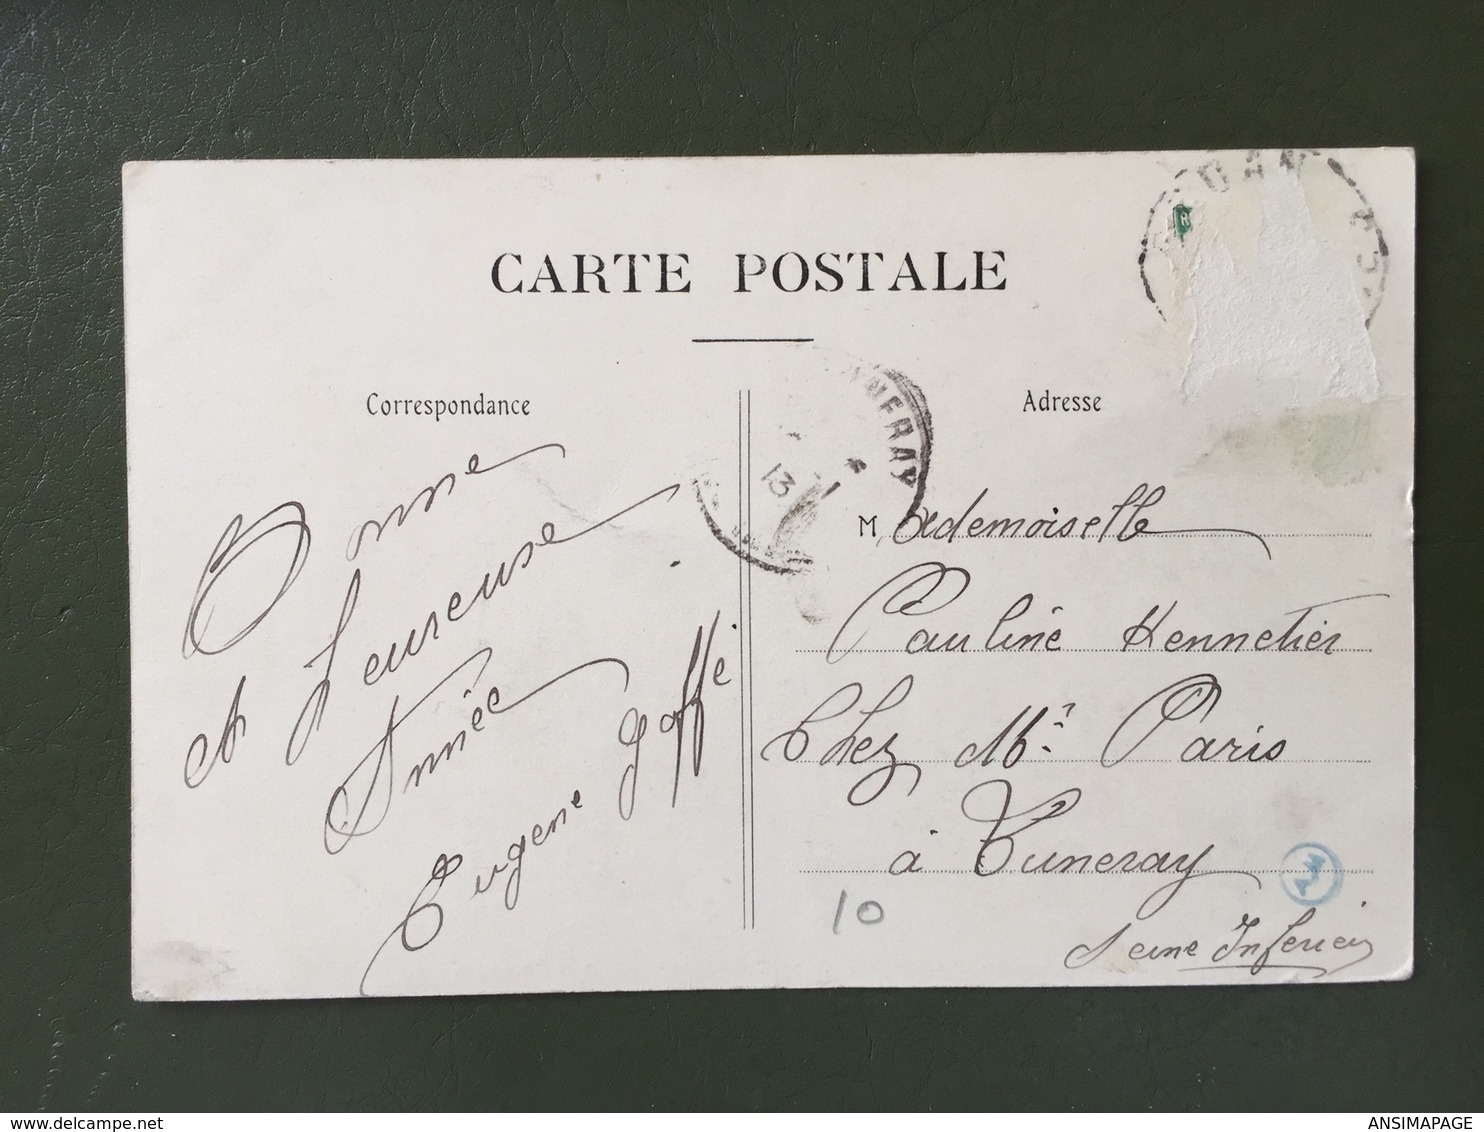 CARTE POSTALE
Correspondance
Bonne
et heureuse
Année
Eugene Jaffé
Adresse
Mademoiselle
Pauline Hennetier
Chez Mr Paris
à Luneray
Seine Inferieu
NERAY
13
10
ANSIMAPAGE